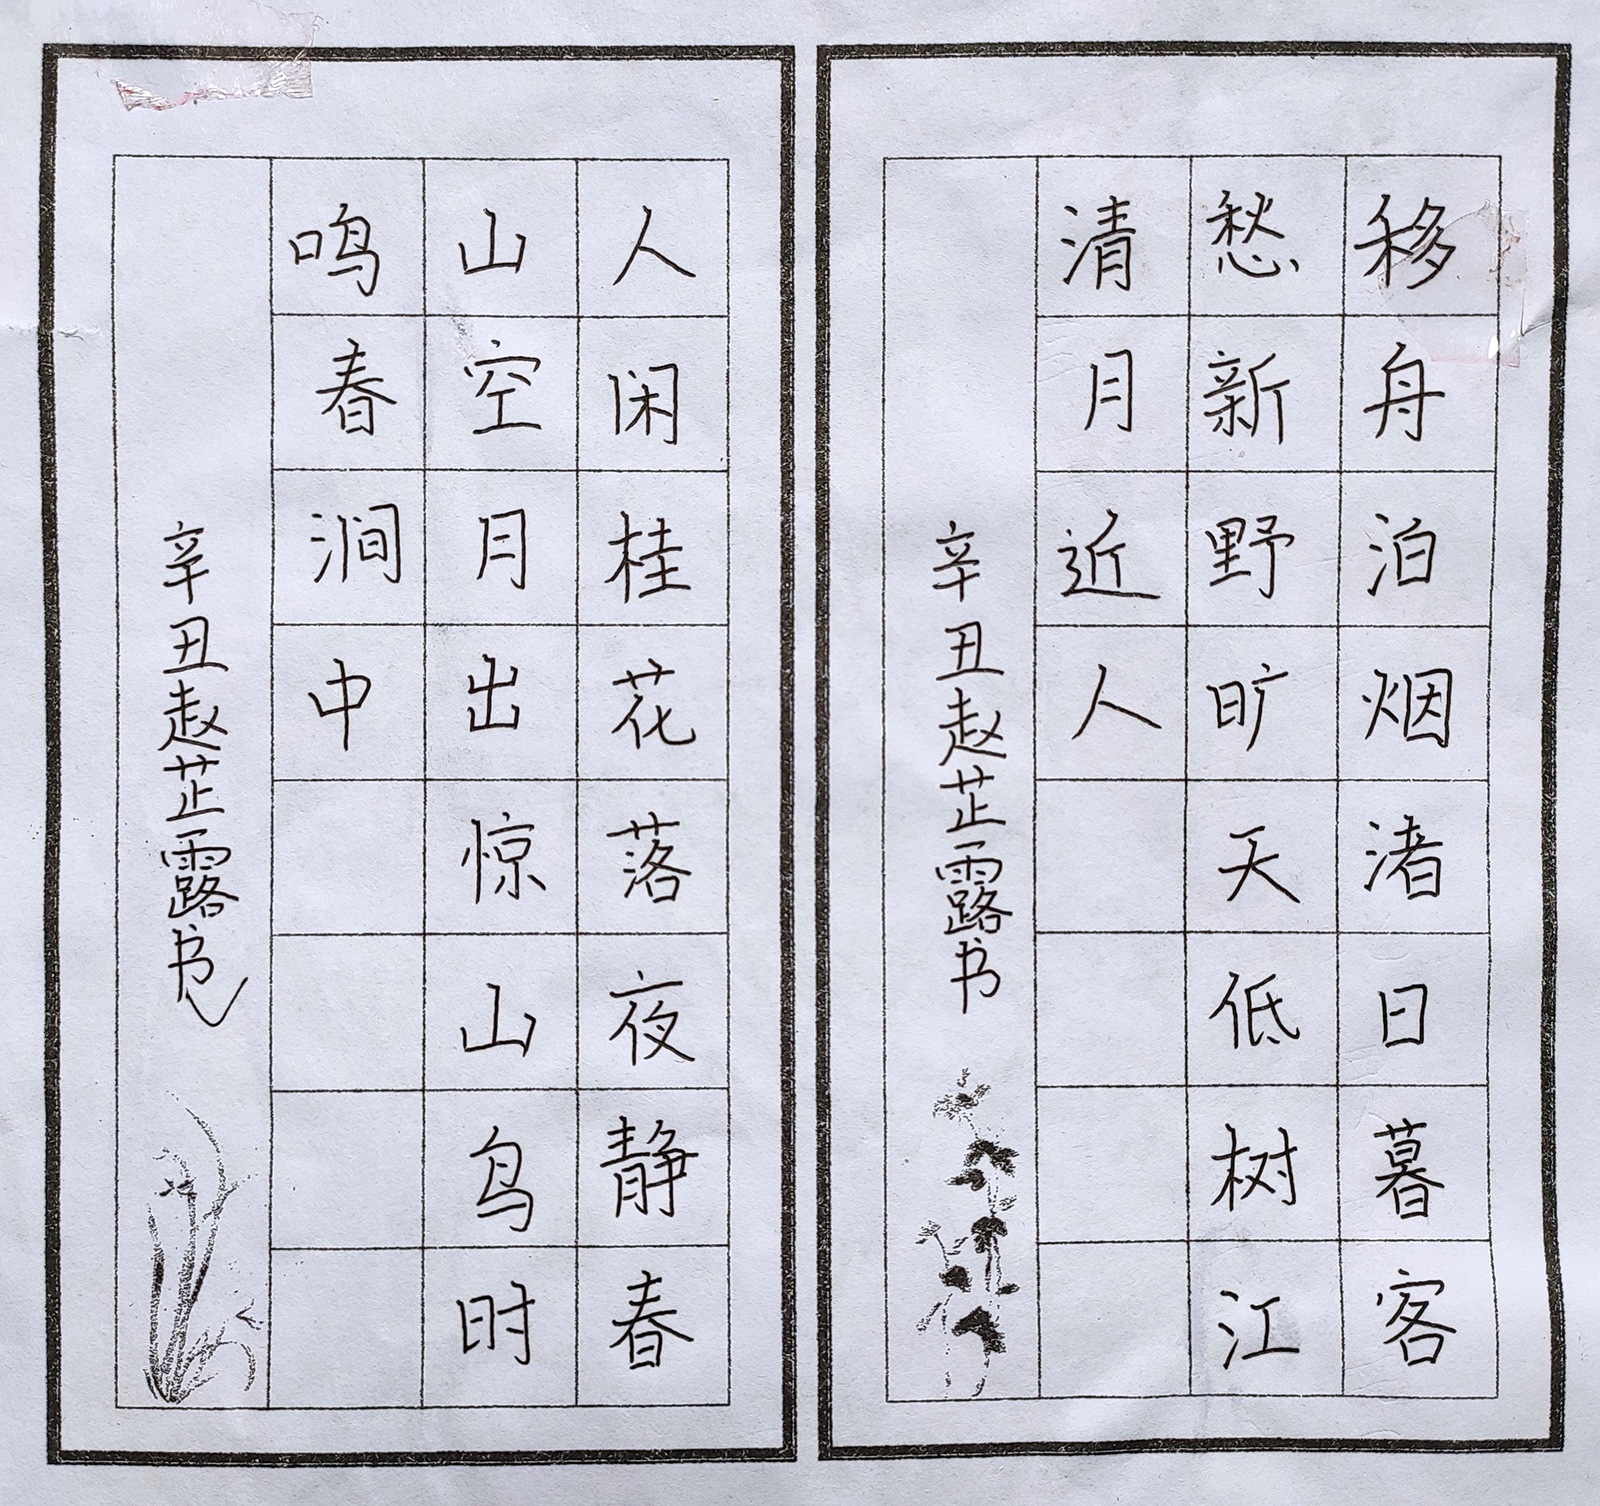 移舟泊烟渚日暮客
愁新野旷天低树江
清月近人
辛丑赵芷露书
人闲桂花落夜静春
山空月出惊山鸟时
鸣春涧中
辛丑赵芷露书